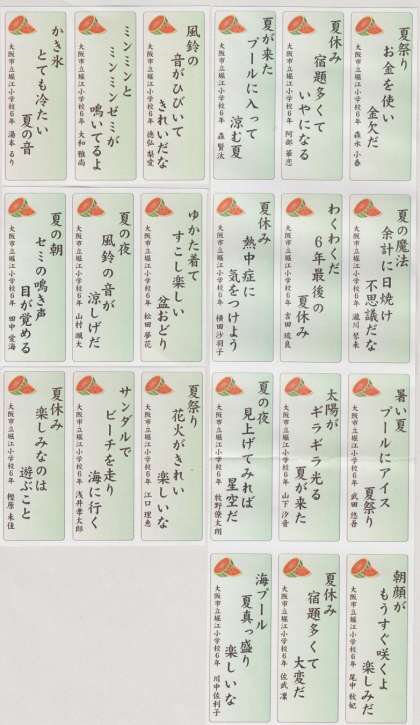 夏祭り
お金を使い
金欠だ
大阪市立堀江小学校6年 森永 小春
夏休み
宿題多くて
いやになる
大阪市立堀江小学校6年 阿部 華恋
夏が来た
プールに入って
涼む夏
大阪市立堀江小学校6年 森 賢汰
風鈴の
音がひびいて
きれいだな
大阪市立堀江小学校6年 徳弘 梨愛
ミンミンと
ミンミンゼミが
鳴いてるよ
大阪市立堀江小学校6年 大和 雅尚
かき氷
とても冷たい
夏の音
大阪市立堀江小学校6年 湯本 るり
夏の魔法
余計に日焼け
不思議だな
大阪市立堀江小学校6年 瀧川 琴未
わくわくだ
6年最後の
夏休み
大阪市立堀江小学校6年 吉田 琉良
夏休み
熱中症に
気をつけよう
大阪市立堀江小学校6年 横田沙羽子
ゆかた着て
すこし楽しい
盆おどり
大阪市立堀江小学校6年 松田 夢花
夏の夜
風鈴の音が
涼しげだ
大阪市立堀江小学校6年 山村 颯太
夏の朝
セミの鳴き声
目が覚める
大阪市立堀江小学校6年 田中 愛海
暑い夏
プールにアイス
夏祭り
大阪市立堀江小学校6年 武田 悠吾
太陽が
ギラギラ光る
夏が来た
大阪市立堀江小学校6年 山下 汐音
夏の夜
見上げてみれば
星空だ
大阪市立堀江小学校6年 牧野僚太朗
夏祭り
花火がきれい
楽しいな
大阪市立堀江小学校6年 江口 理恵
サンダルで
ビーチを走り
海に行く
大阪市立堀江小学校6年 浅井孝太郎
夏休み
楽しみなのは
遊ぶこと
大阪市立堀江小学校6年 樫原 未佳
朝顔が
もうすぐ咲くよ
楽しみだ
大阪市立堀江小学校6年 尾中 牧妃
夏休み
宿題多くて
大変だ
大阪市立堀江小学校6年 佐武 凜
海プール
夏真っ盛り
楽しいな
大阪市立堀江小学校6年 川中佐利子